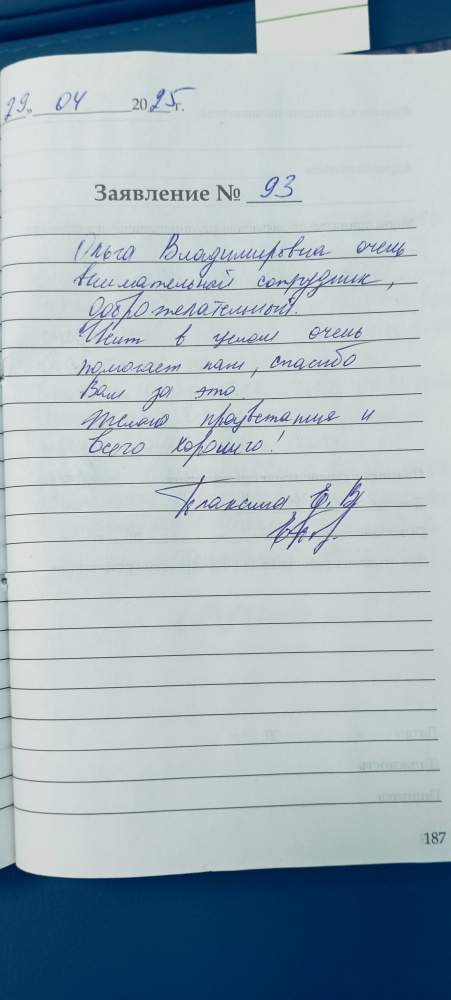 29. 04 2025 г.
Заявление № 93
Ольга Владимировна очень
внимательный сотрудник,
доброжелательный.
в целом очень
помогает нам, спасибо
Вам за это.
Желаю процветания и
всего хорошего!
187